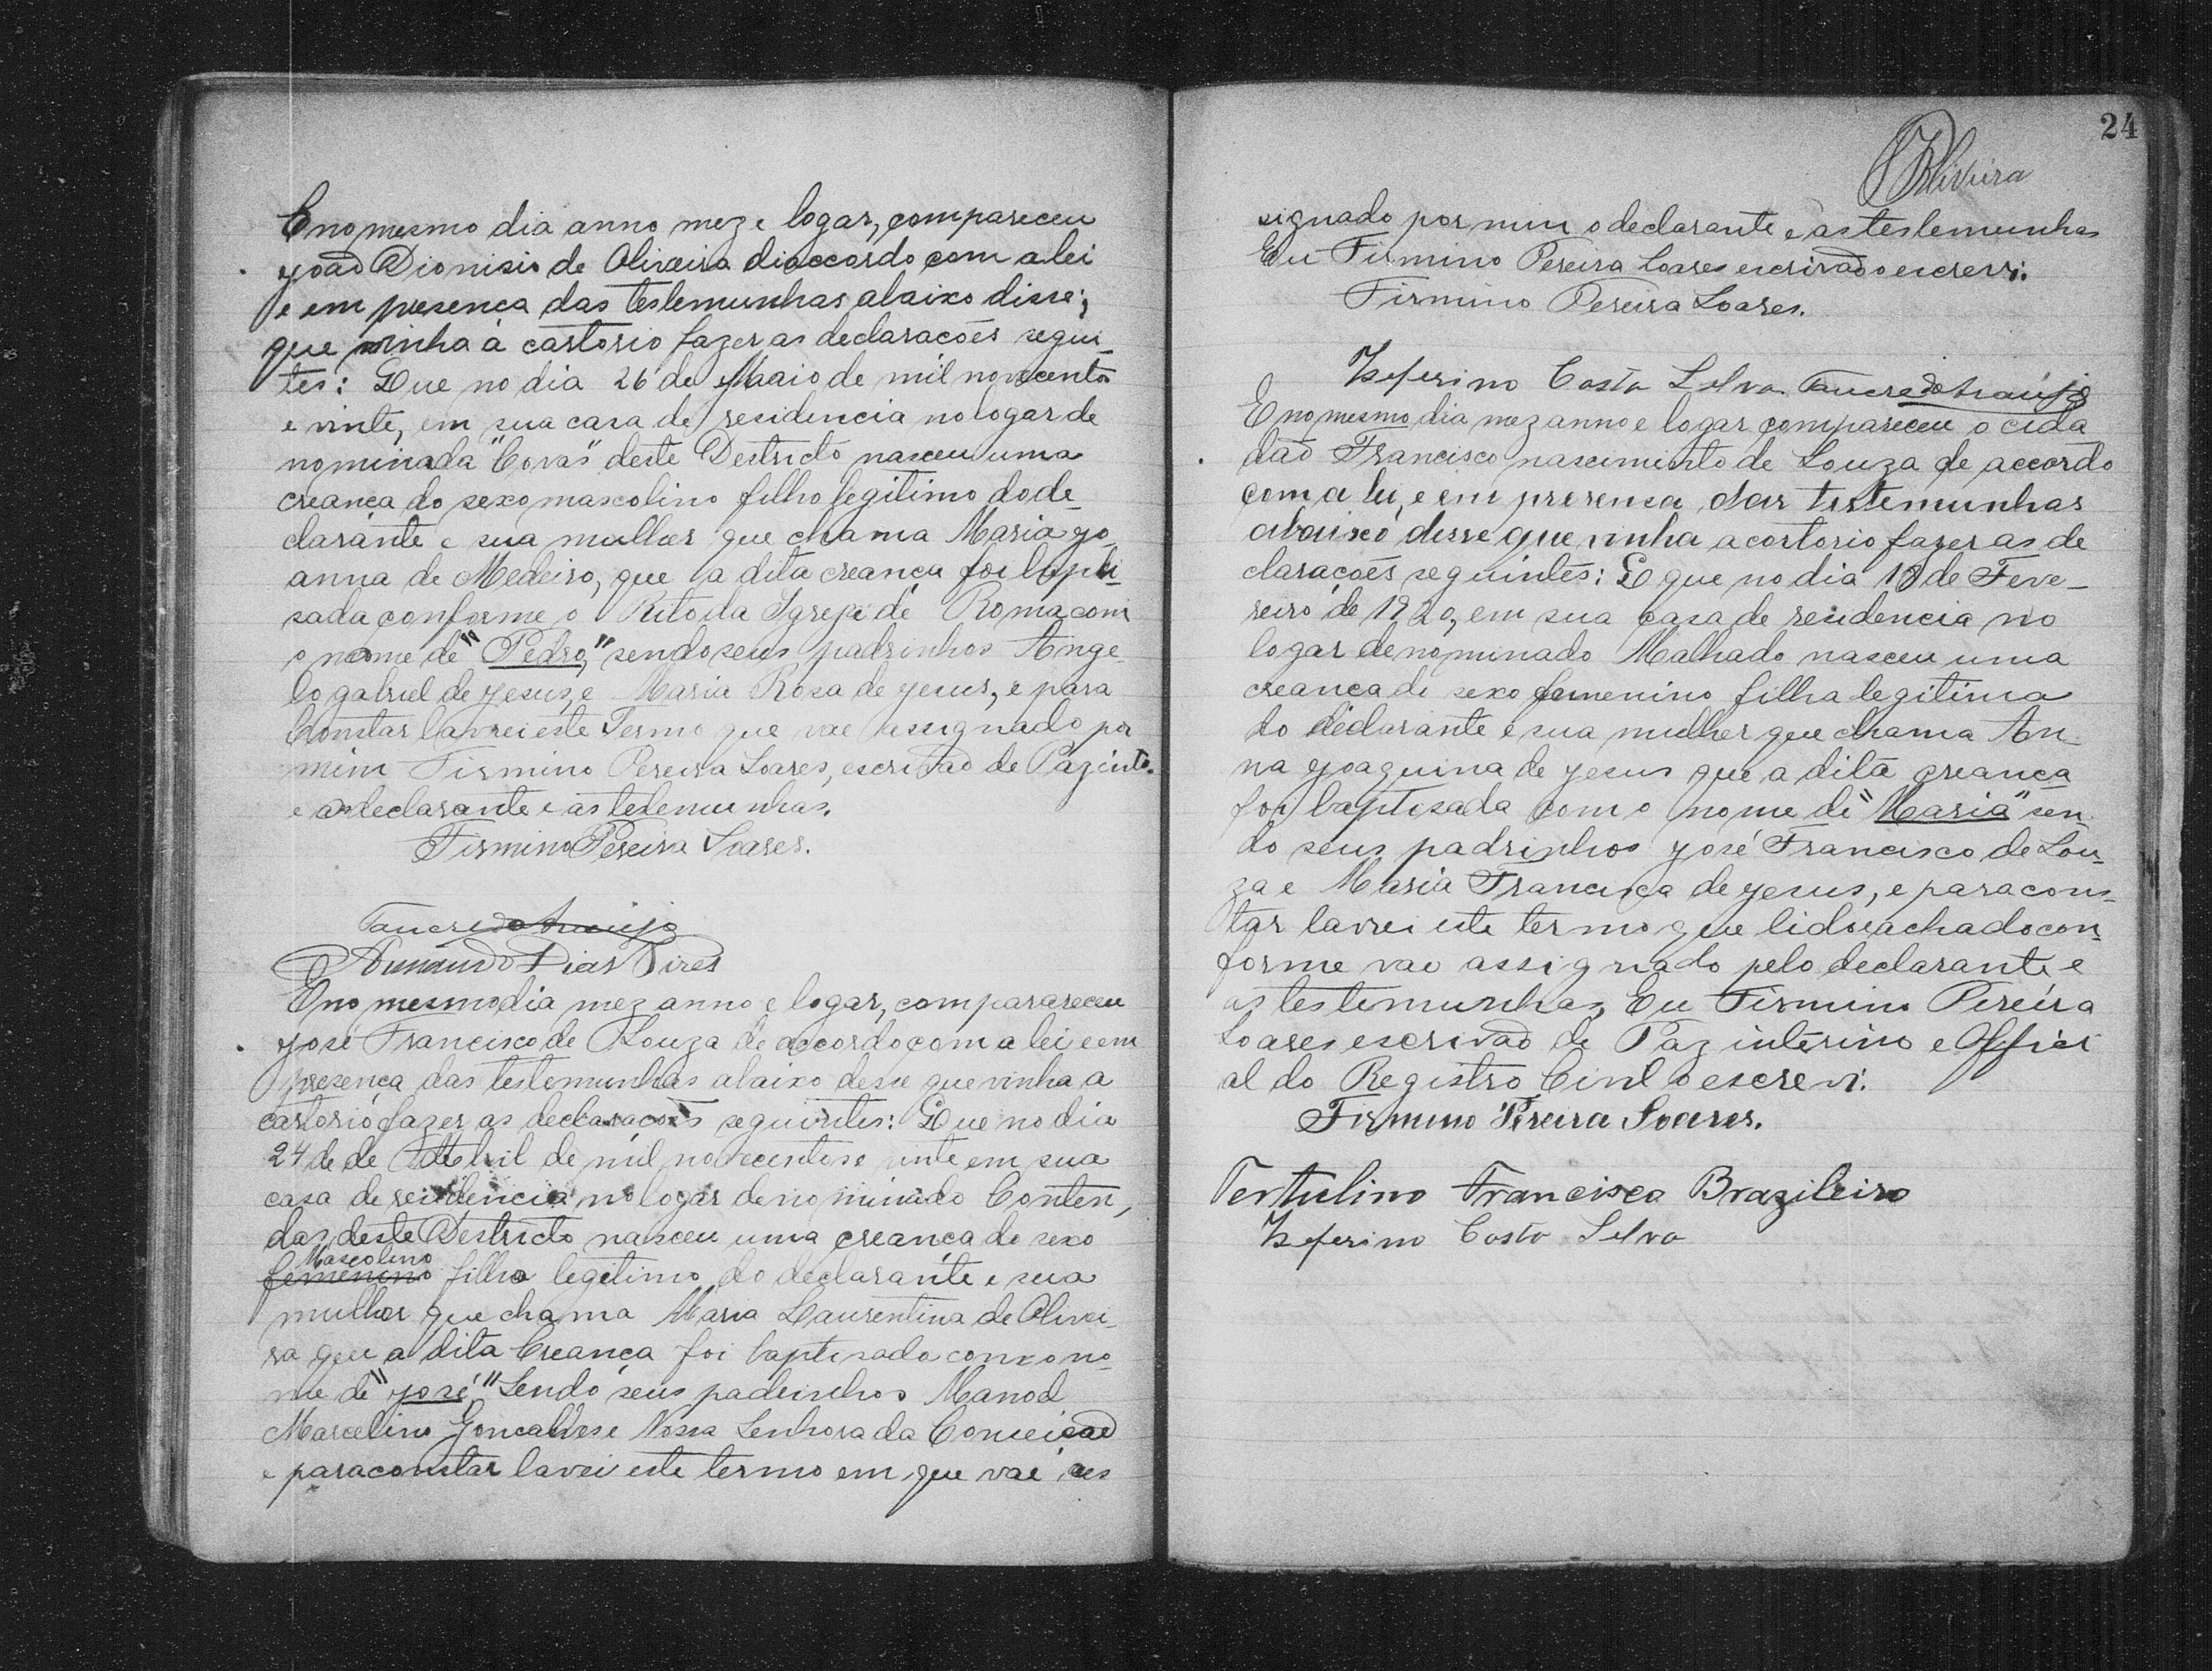 E no mesmo dia anno mez e logar, compareceu
João Dionisio de Oliveira diaccordo com a lei
e em presença das testemunhas abaixo disse;
que vinha à cartorio fazer as declaracões seguin_
tes: Que no dia 26 de Maaio de mil novecentos
e vinte, em sua casa de residencia no logar de
nominada "Covas" deste Destricto nasceu uma
creança do sexo mascolino filho legitimo do de_
clarante e sua mulher que chama Maria Jo_
anna de Medeiro, que a dita creança foi bapti_
sada conforme o Rito da Igreja de Roma com
o nome de "Pedro," sendo seus padrinhos Ange_
lo gabriel de Jesus, e Maria Rosa de Jesus, e para
Constar lavrei este Termo que vae assignado por
mim Firmino Pereira Soares, escrivão de Paz intº.
e o declarante e as testemunhas.
Firmino Pereira Soares.
Tancredo Araujo
Dias Pires
E no mesmo dia mez anno e logar, comparareceu
José Francisco de Souza de accordo com a lei e em
presença das testemunhas abaixo desse que vinha a
cartorio fazer as declaracoes seguintes: Que no dia
24 de de Abril de mil novecentos e vinte em sua
casa de residencia no logar denominado Conten_
das deste Destricto nasceu uma creança do sexo
Mascolino
femenino filho legitimo do declarante e sua
mulher que chama Maria Laurentina de Olivei_
ra que a dita Creança foi baptisada com o no_
me de "José" Sendo seus padrinhos Manoel
Marcelino Goncalves e Nossa Senhora da Conceicão
e para constar lavrei este termo em que vai as
24
Oliveira
signado por mim o declarante e as testemunhas
Eu Firmino Pereira Soares escrivão o escrevi.
Firmino Pereira Soares.
Zeferino Costa Selva Tancredo Araujo
E no mesmo dia mez anno e logar compareceu o cida
dão Francisco nascimento de Souza de accordo
com a lei, e em presensa das testemunhas
abaixo desse que vinha a cartorio fazer as de
claracoēs seguintes: Q que no dia 18 de Feve_
reiro de 1920, em sua casa de residencia no
logar denominado Malhado nasceu uma
creanca de sexo femenino filha legitima
do declarante e sua mulher que chama An_
na Joaquina de Jesus que a dita creança
foi baptisada com o nome de "Maria" sen_
do seus padrinhos José Francisco de Sou_
za e Maria Francisca de Jesus, e para cons_
tar lavrei este termo que lido e achado con_
forme vae assignado pelo declarante e
as testemunhas, Eu Firmino Pereira
Soares escrivão de Paz interino e Offici
al do Registro Civil o escrevi.
Firmino Pereira Soares.
Tertulino Francisco Brazileiro
Zeferino Costa Selva